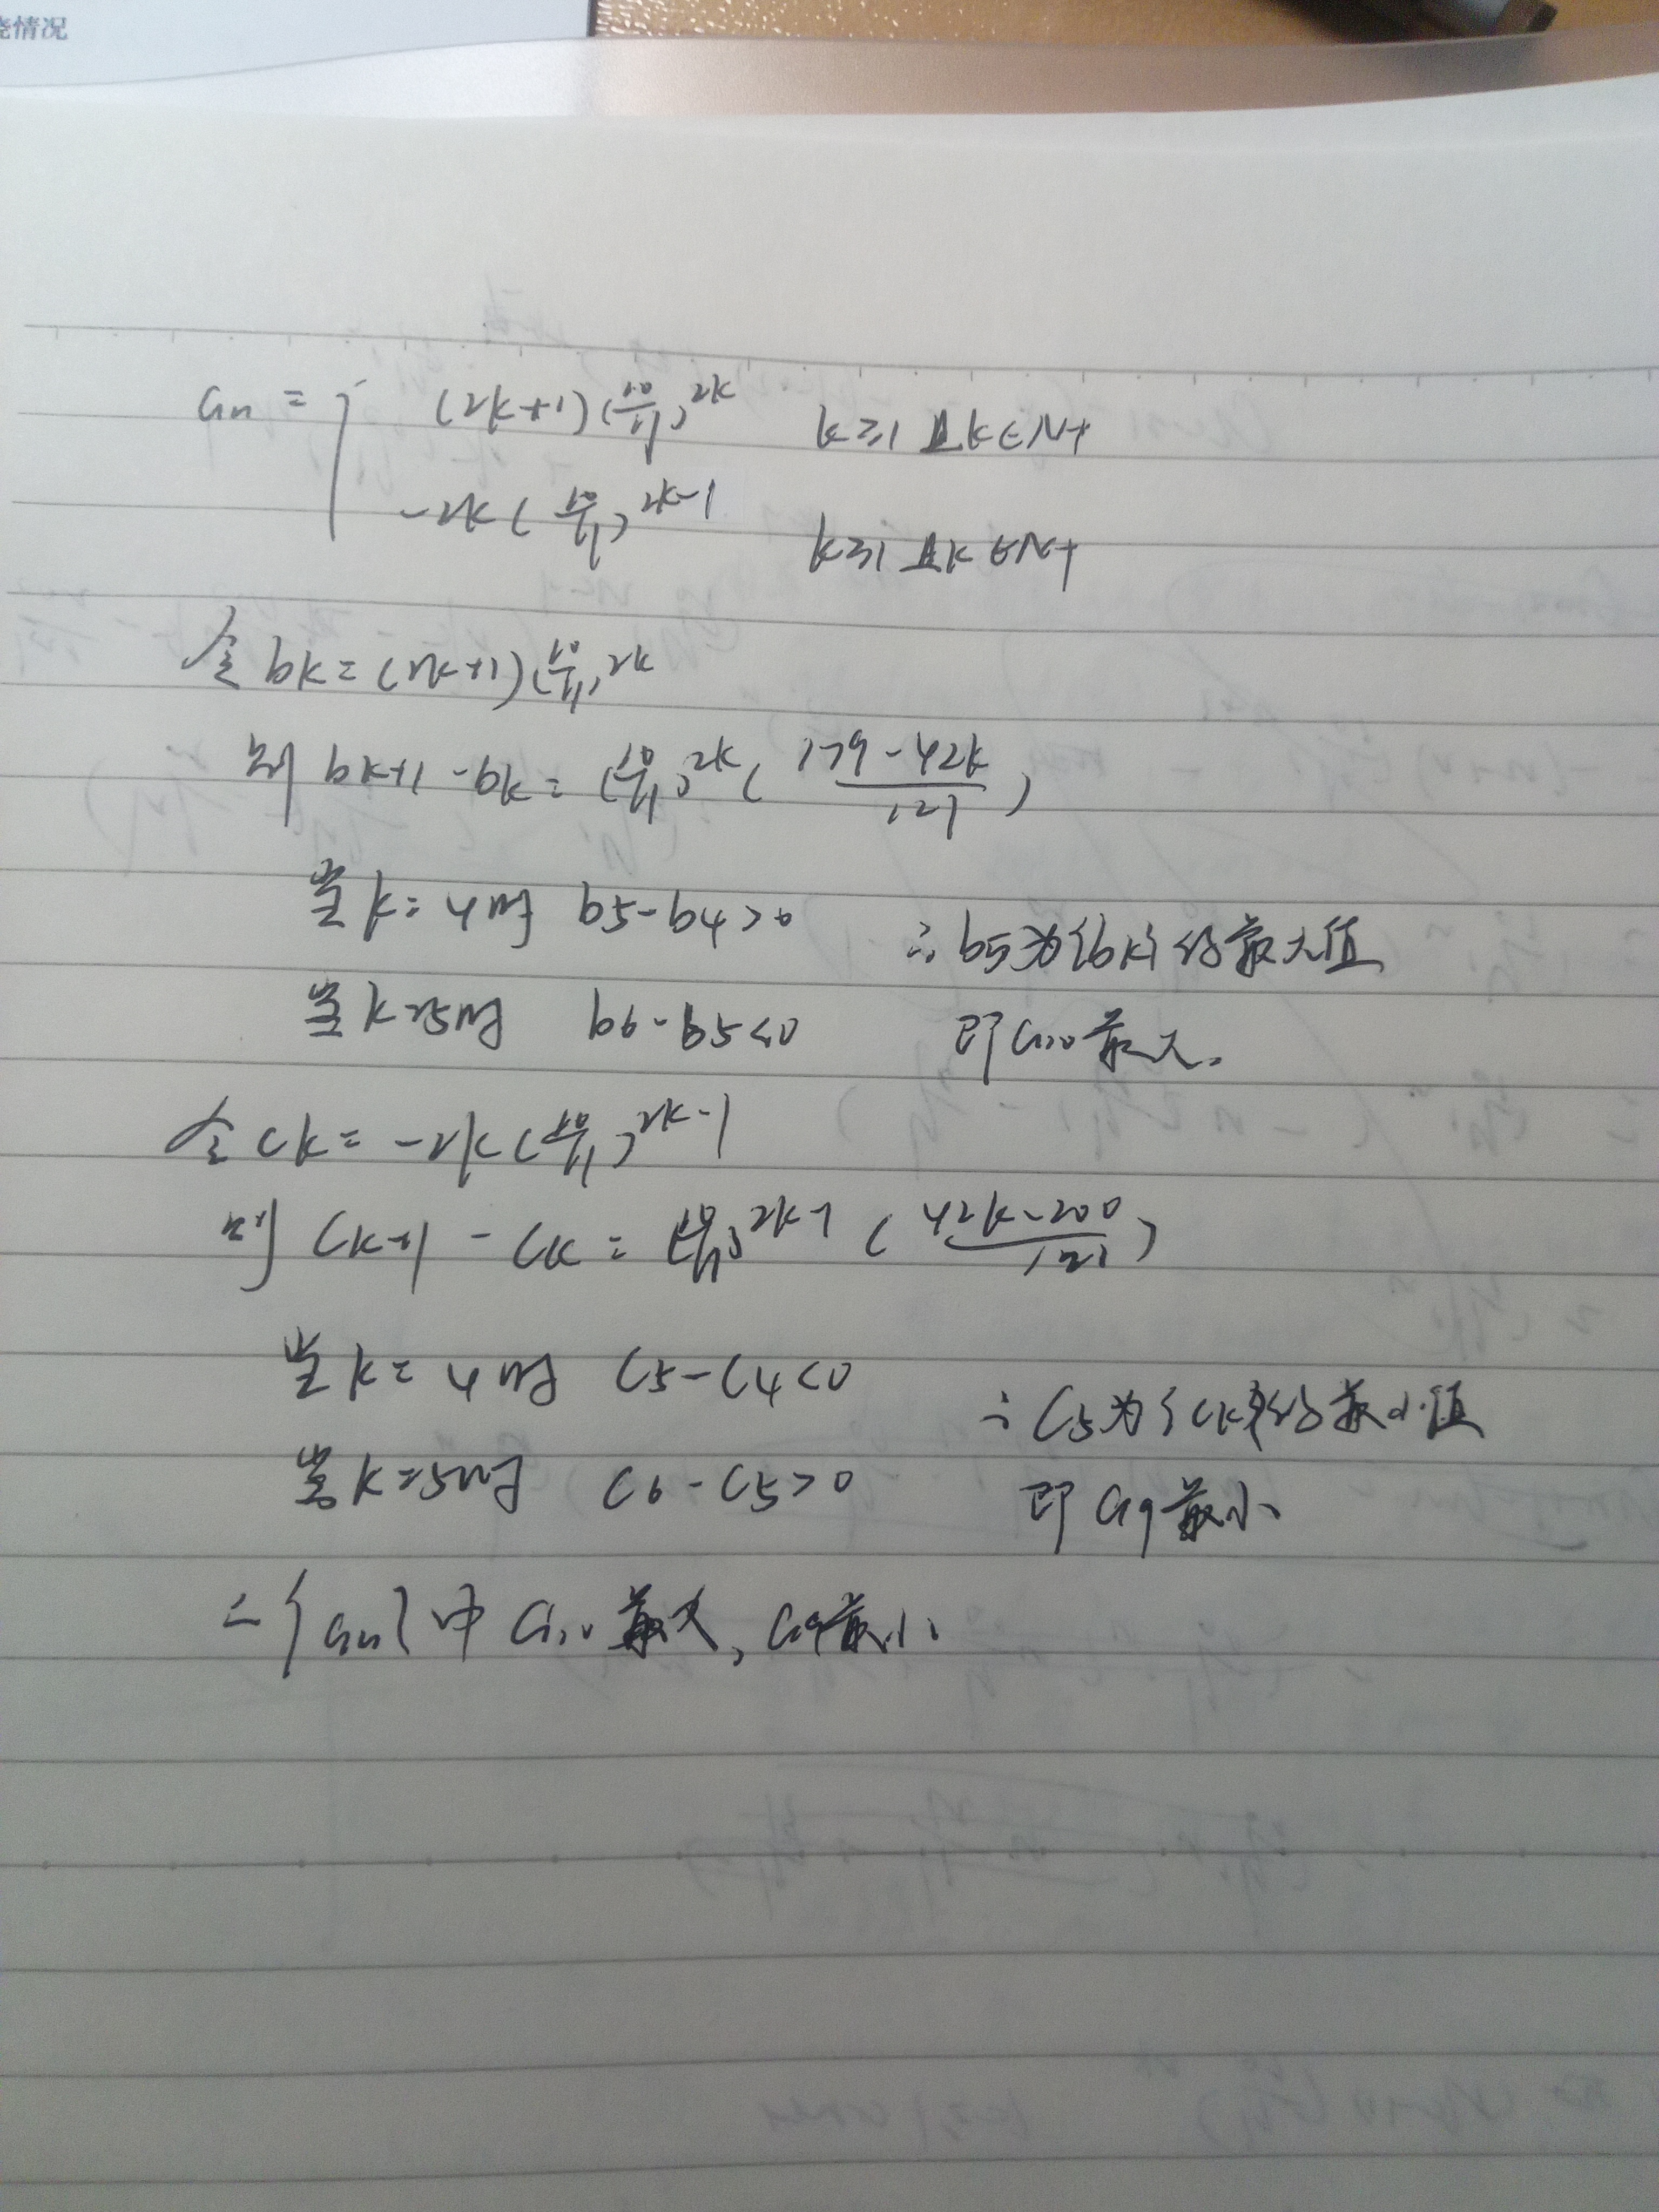 烧情况
an = { (2k+1)(10/11)^2k k≥1且k∈N+
-2k(10/11)^2k-1 k≥1且k∈N+
令bk=(2k+1)(10/11)^2k
则 bk+1-bk=(10/11)^2k(179-42k/121)
当k=4时 b5-b4>0 ∴b5为{bk}的最大值
当k=5时 b6-b5<0 即a10最大.
令ck=-2k(10/11)^2k-1
则 Ck+1-Ck=(10/11)^2k-1(42k-200/121)
当k=4时 C5-C4<0 ∴C5为{Ck}的最小值
当k=5时 C6-C5>0 即a9最小
∴{an}中a10最大,a9最小